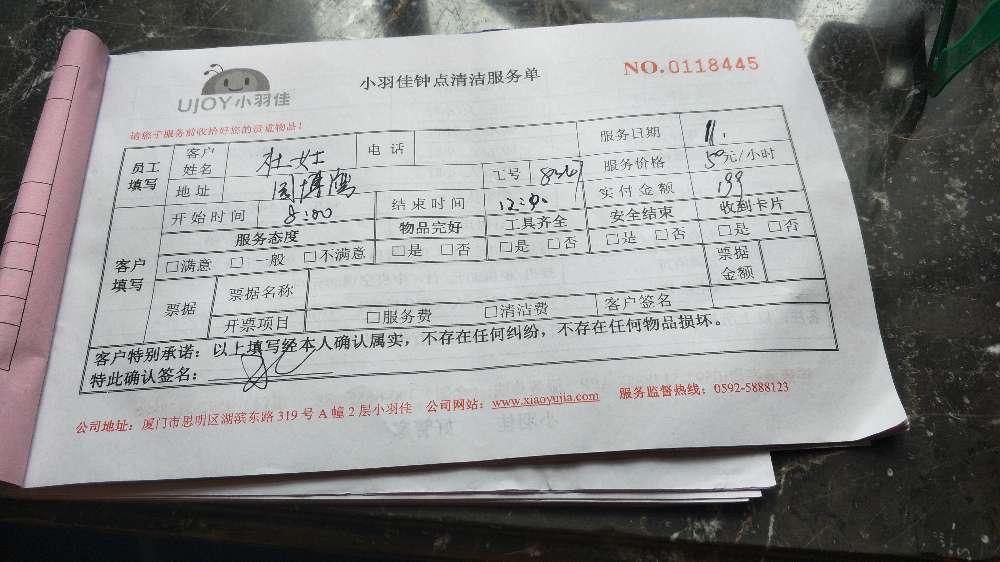 UJOY小羽佳
小羽佳钟点清洁服务单
NO.0118445
请您于服务前收拾好您的贵重物品!
员工填写 客户姓名 杜女士 电话 服务日期 11.
地址 工号 服务价格 50元/小时
开始时间 8:00 结束时间 12:00 实付金额 199
客户填写 服务态度 物品完好 工具齐全 安全结束 收到卡片
□满意 □一般 □不满意 □是 □否 □是 □否 □是 □否 □是 □否
票据 票据名称 票据金额
开票项目 □服务费 □清洁费 客户签名
客户特别承诺:以上填写经本人确认属实,不存在任何纠纷,不存在任何物品损坏。
特此确认签名:
公司地址:厦门市思明区湖滨东路319号A幢2层小羽佳 公司网站:www.xiaoyujia.com 服务监督热线:0592-5888123